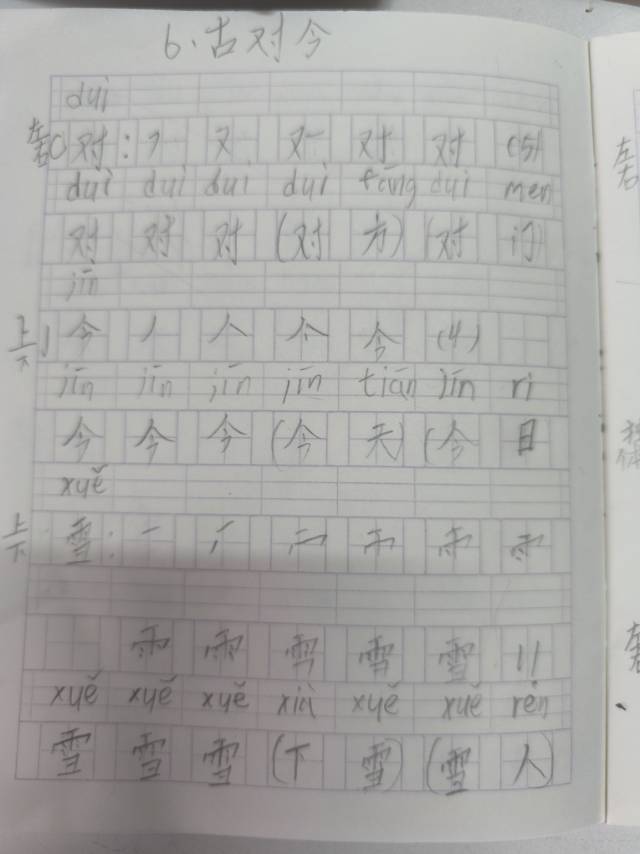 6.古对今
duì
左右 对：フ 又 对 对 (5)
duì duì duì duì fāng duì men
对 对 对 (对 方) (对 门)
jīn
上下 今 丿 人 今 (4)
jīn jīn jīn jīn tiān jīn rì
今 今 今 (今 天) (今 日
xuě
上下 雪：一
雪 雪 11
xuě xuě xuě xià xuě xuě rén
雪 雪 雪 (下 雪) (雪 人)
左右
左